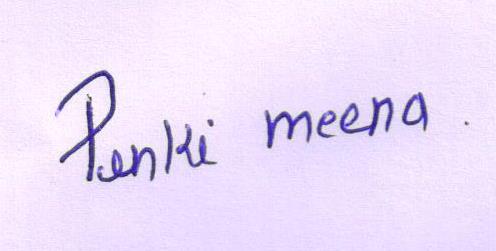 Penki meena.